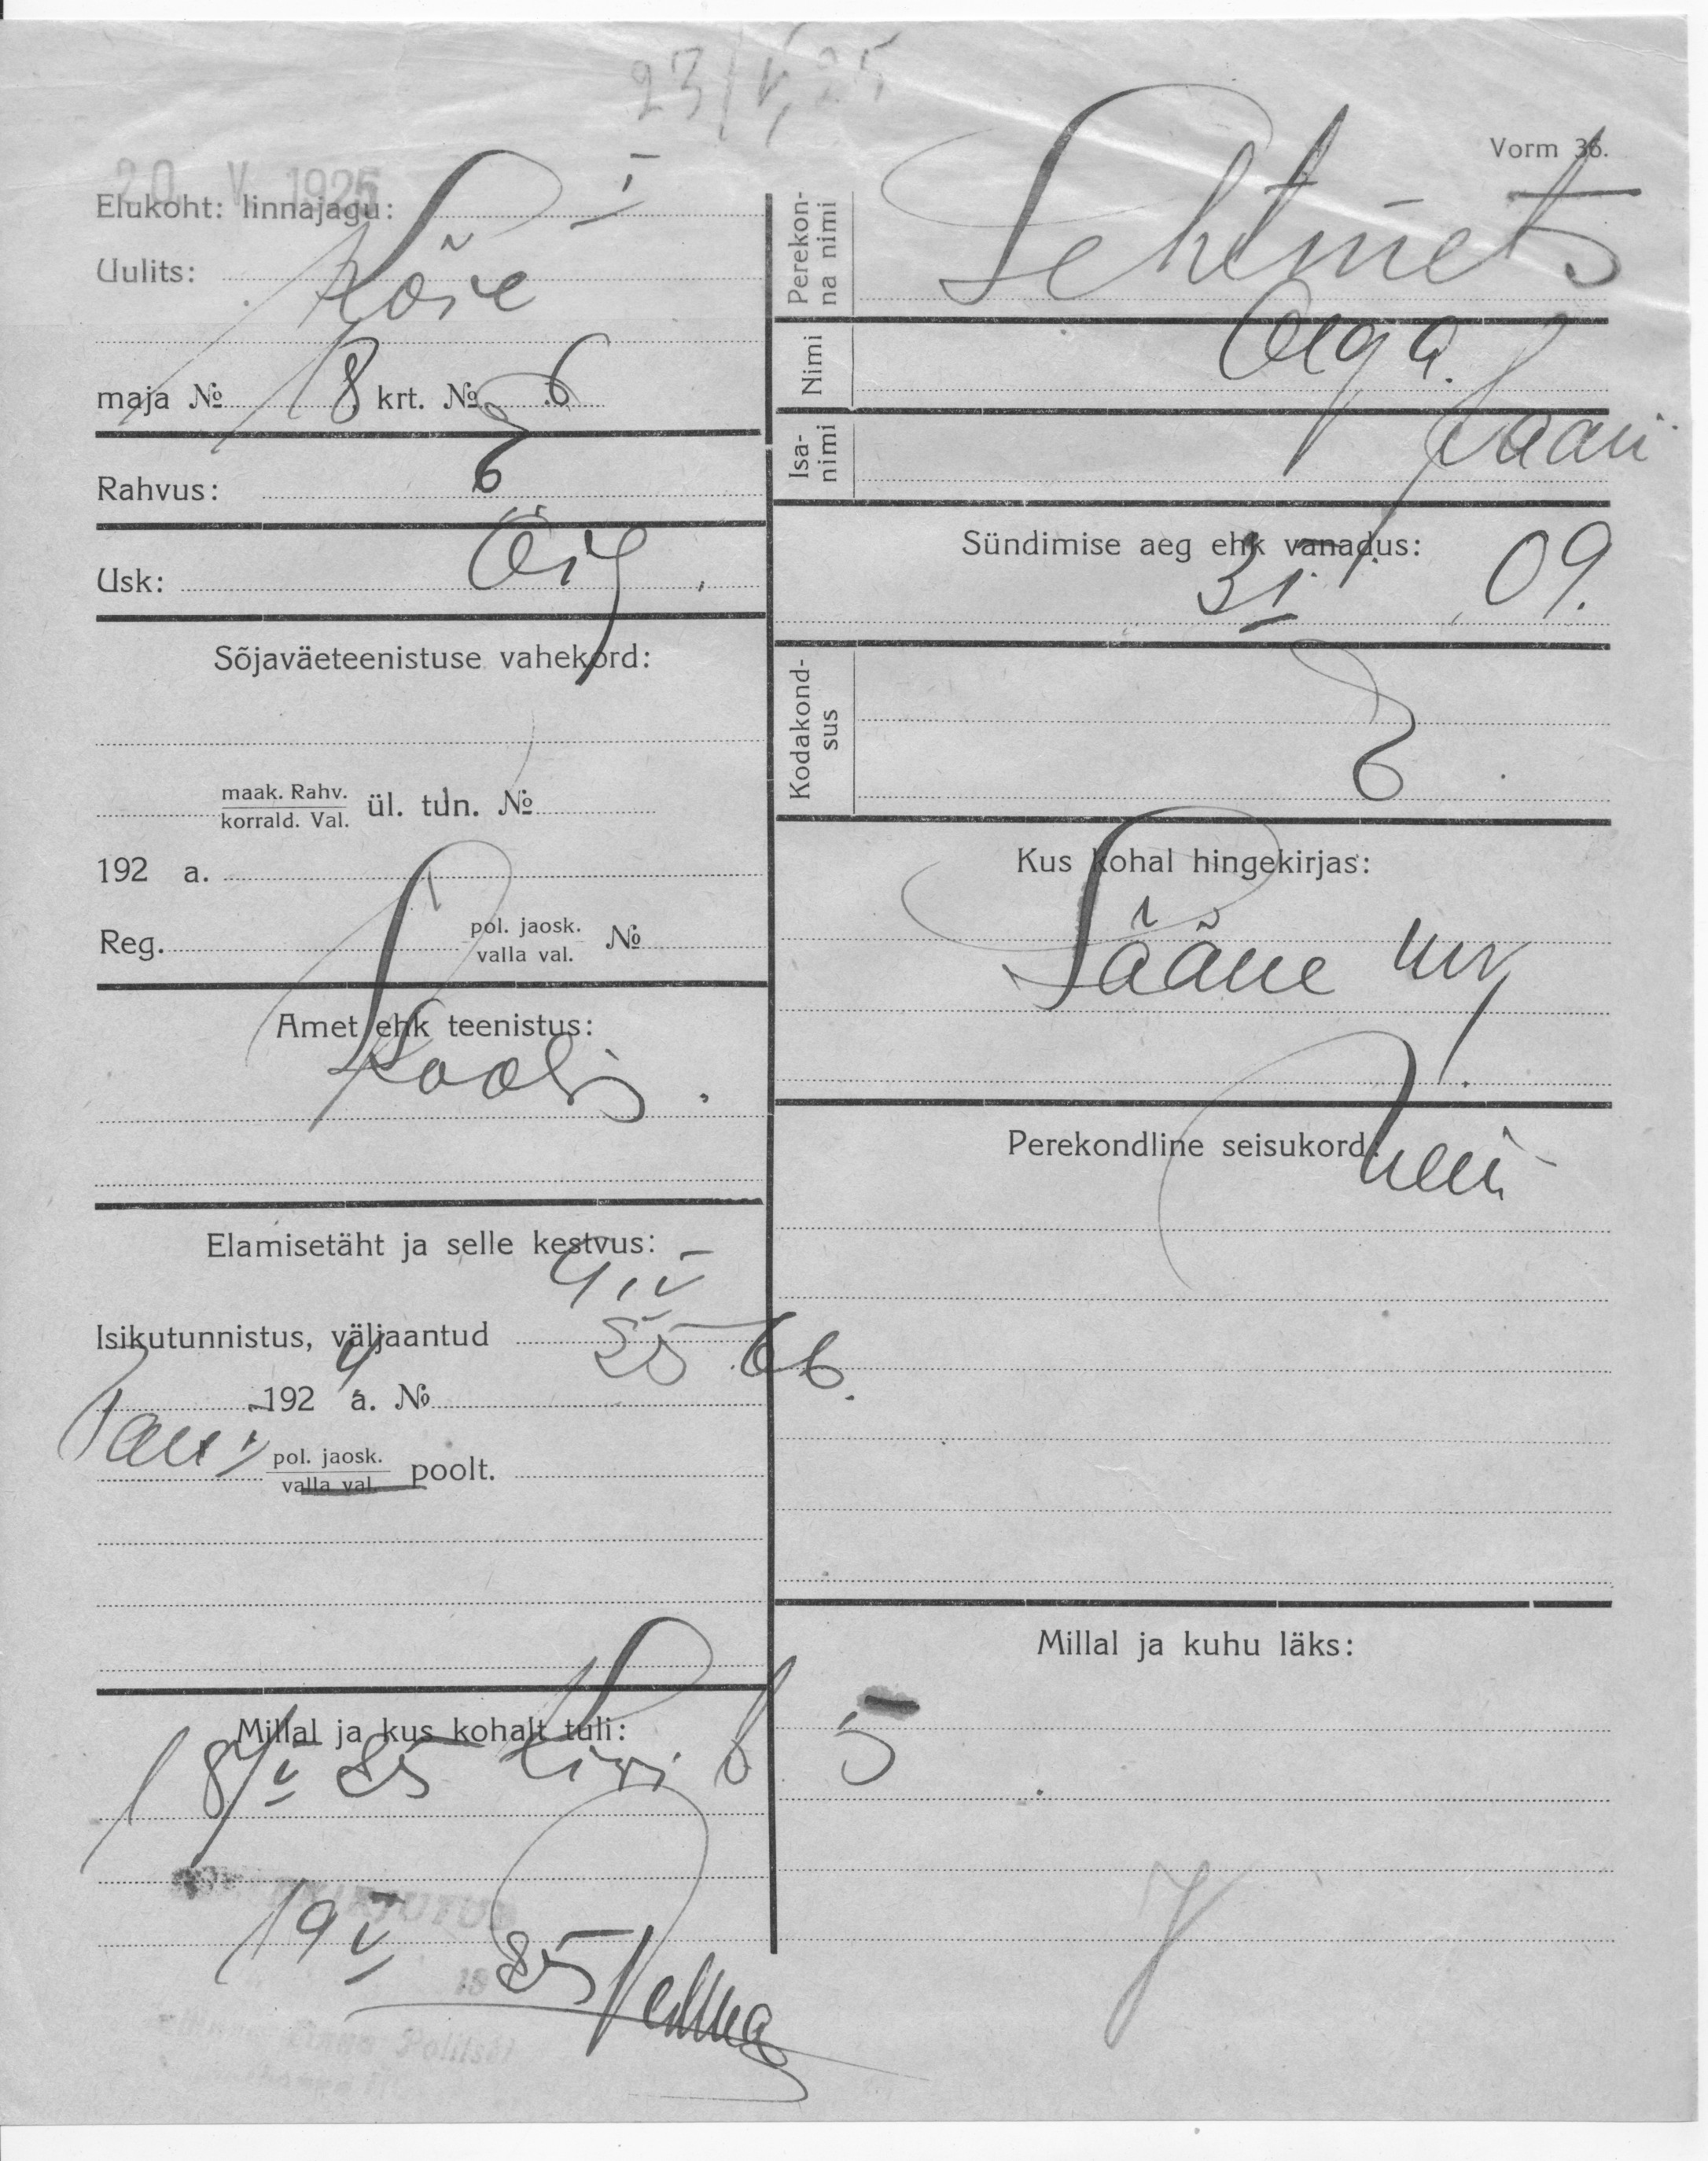 23/V 25
Vorm 36.
20. V. 1925
Elukoht: linnajagu: I
Uulits: Kõre
maja № 8 krt. № 6
Rahvus: E
Usk: Õig.
Sõjaväeteenistuse vahekord:
maak. Rahv.
korrald. Val. ül. tun. №
192 a.
Reg. pol. jaosk.
valla val. №
Amet ehk teenistus:
Koolis.
Elamisetäht ja selle kestvus:
4. V
Isikutunnistus, väljaantud 25
192 a. №
pol. jaosk.
valla val. poolt.
Millal ja kus kohalt tuli:
18/V 25 Kivi 6 5
19 V 25
Perekon-
na nimi
Lehtmets
Nimi
Olga.
Isa-
nimi
Jaan
Sündimise aeg ehk vanadus:
31. 09.
Kodakond-
sus
E
Kus kohal hingekirjas:
Lääne
Perekondline seisukord:
Millal ja kuhu läks: